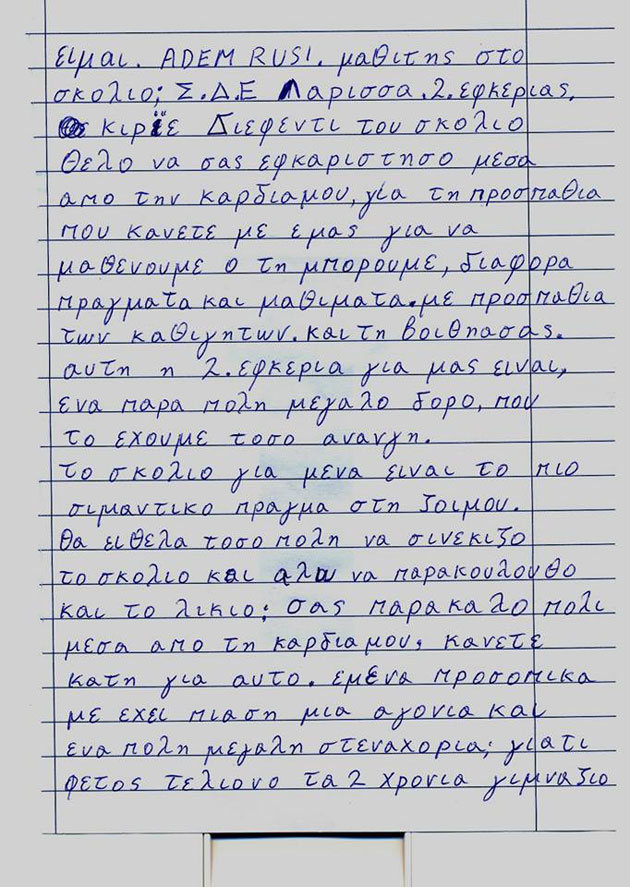 ειμαι. ADEM RUSI. μαθιτης στο
σκολιο; Σ.Δ.Ε Λαρισσα.2.εφκεριας.
κιριε Διεφεντι του σκολιο
Θελο να σας εφκαριστησο μεσα
απο την καρδιαμου, για τη προσπαθια
που κανετε με εμας για να
μαθενουμε ο τη μπορουμε, διαφορα
πραγματα και μαθιματα. με προσπαθια
των καθιγητων. και τη βοιθηασας.
αυτη η 2. εφκερια για μας ειναι,
ενα παρα πολη μεγαλο δορο, που
το εχουμε τοσο ανανγη.
το σκολιο για μενα ειναι το πιο
σιμαντικο πραγμα στη ζοιμου.
θα ειθελα τοσο πολη να σινεκιζο
το σκολιο και αλω να παρακουλουθο
και το λικιο; σας παρακαλο πολι
μεσα απο τη καρδιαμου. κανετε
κατη για αυτο. εμενα προσοπικα
με εχει πιαση μια αγονια και
ενα πολη μεγαλη στεναχορια; γιατι
φετος τελιονο τα 2 χρονια γιμναζιο